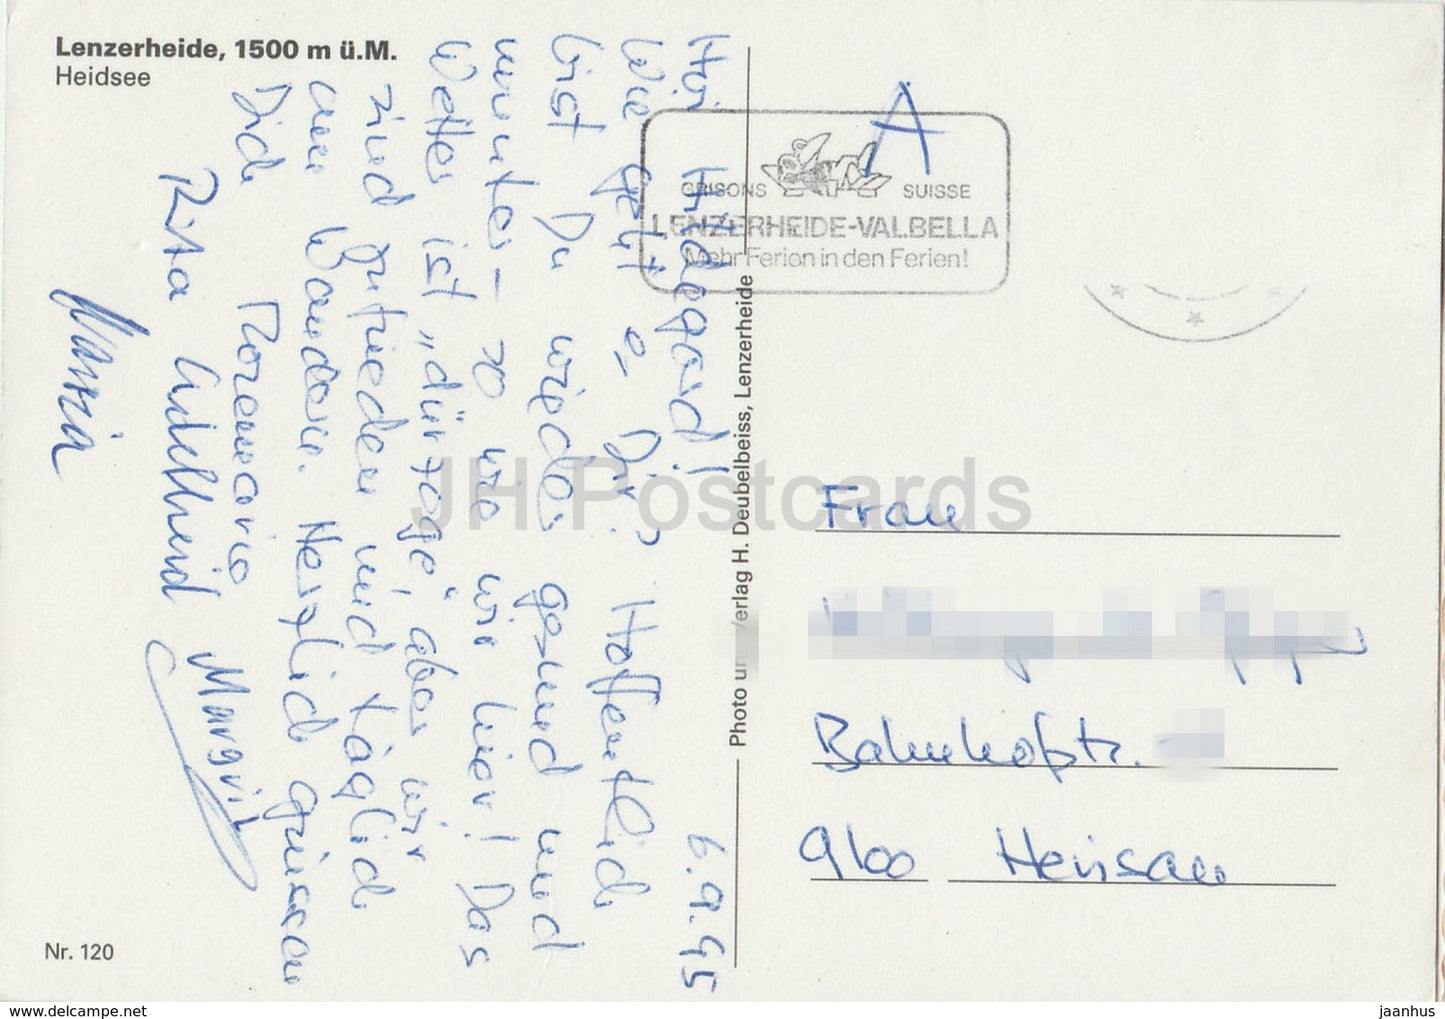 Lenzerheide, 1500 m ü.M.
Heidsee
Hoi Hildegard!
6.9.95
Wie geht's Dir? Hoffentlich
bist Du wieder gesund und
munter – so wie wir hier! Das
Wetter ist „dürzoge“, aber wir
sind zufrieden und täglich
am Wandern. Herzlich grüssen
Dich Rosmarie
Rita Adelheid Margrit
Maria
A
GRISONS SUISSE
LENZERHEIDE-VALBELLA
Mehr Ferien in den Ferien!
Photo und Verlag H. Deubelbeiss, Lenzerheide
Frau
Bahnhofstr.
9100 Herisau
Nr. 120
JH Postcards
www.delcampe.net
jaanhus